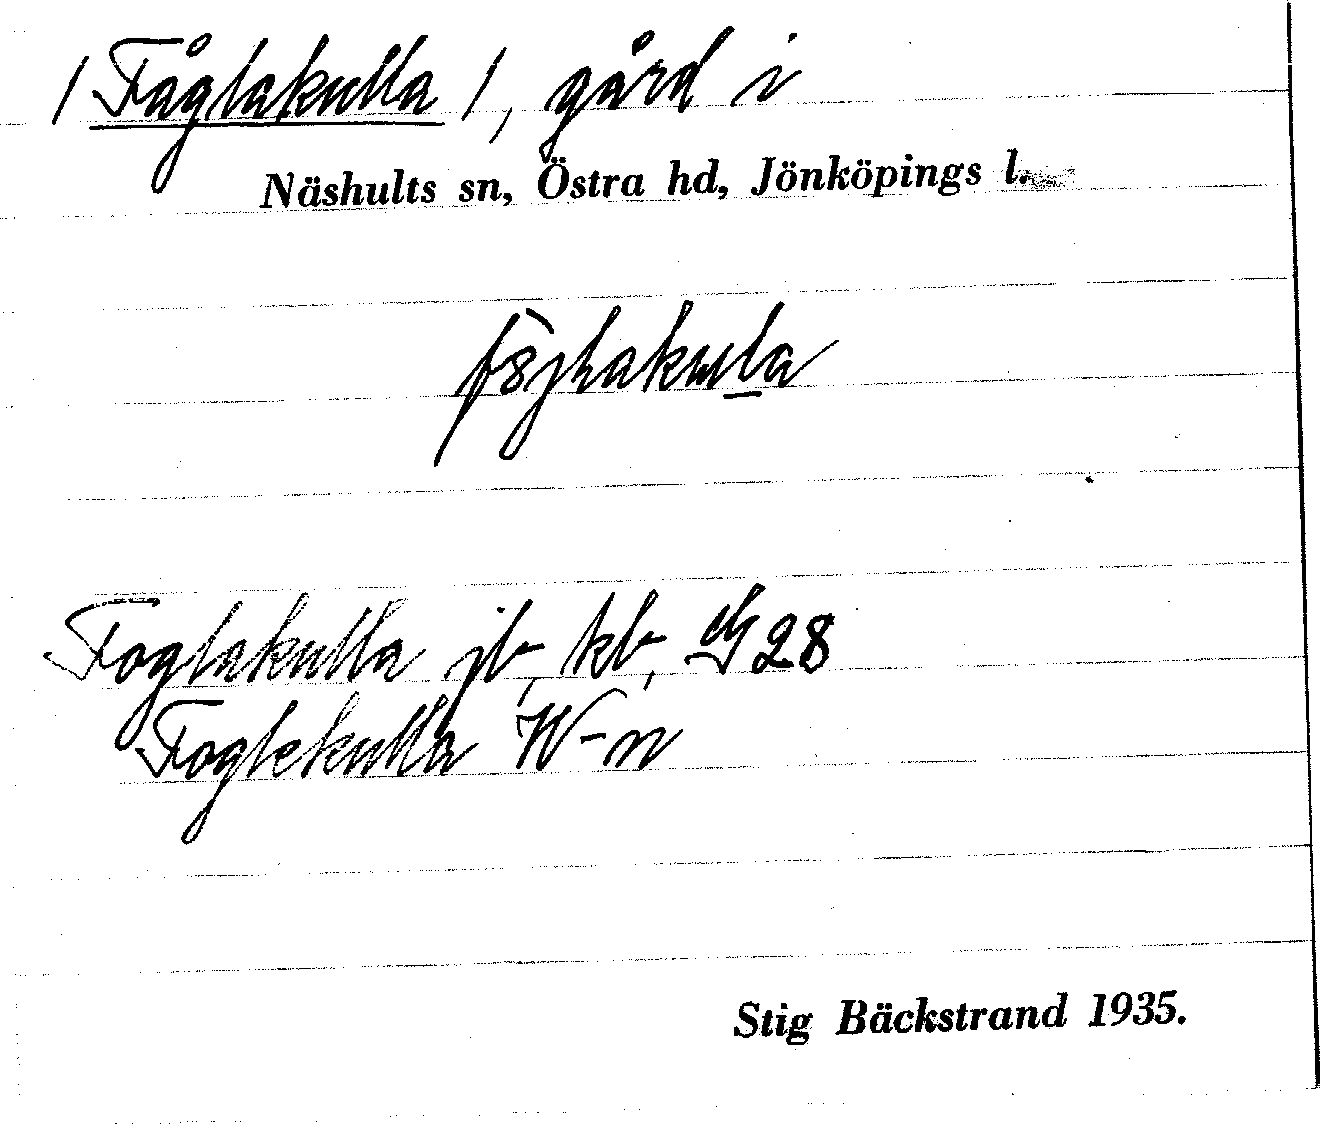 / Fåglakulla /, gård i
Näshults sn, Östra hd, Jönköpings l.
Foglakulla jb, kb, G 28
Foglekulla W-n
Stig Bäckstrand 1935.